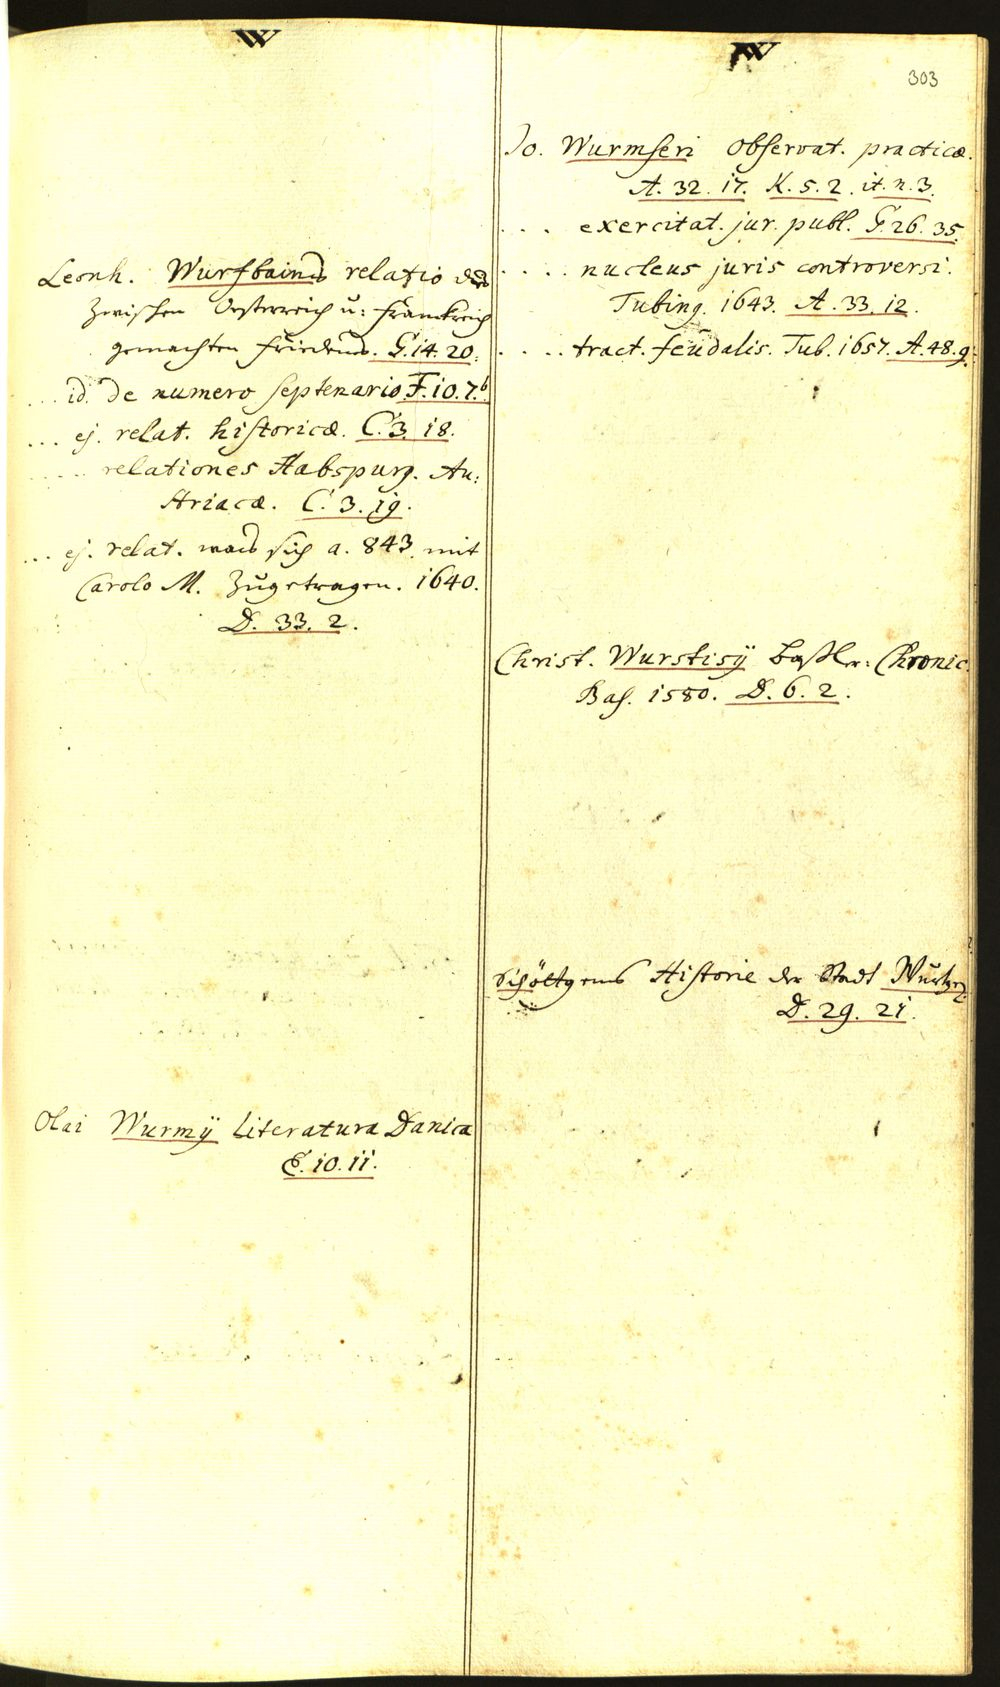 W
Leonh. Wurfbains relatio des
zwischen Oesterreich u: Franckreich
gemachten Friedens. G. 14. 20.
... id. de numero septenario F. 10. 7.b
... ej. relat. historicæ. C. 3. 18.
.... relationes Habspurg. Au:
striacæ. C. 3. 19.
... ej. relat. was sich a. 843. mit
Carolo M. zugetragen. 1640.
D. 33. 2.
Olai Wurmij Literatura Danica
E. 10. 11.
W
303
Jo. Wurmseri observat. practicæ.
A. 32. 17. K. 5. 2. it. n. 3.
. . . exercitat. jur. publ. G. 26. 35.
. . . . nucleus juris controversi.
Tubing. 1643. A. 33. 12.
. . . . tract. feudalis. Tub. 1657. A. 48. 9.
Christ. Wurstisij Baßler: Chronic.
Bas. 1580. D. 6. 2.
Schöttgens Historie der Stadt Wurtzen
D. 29. 21.